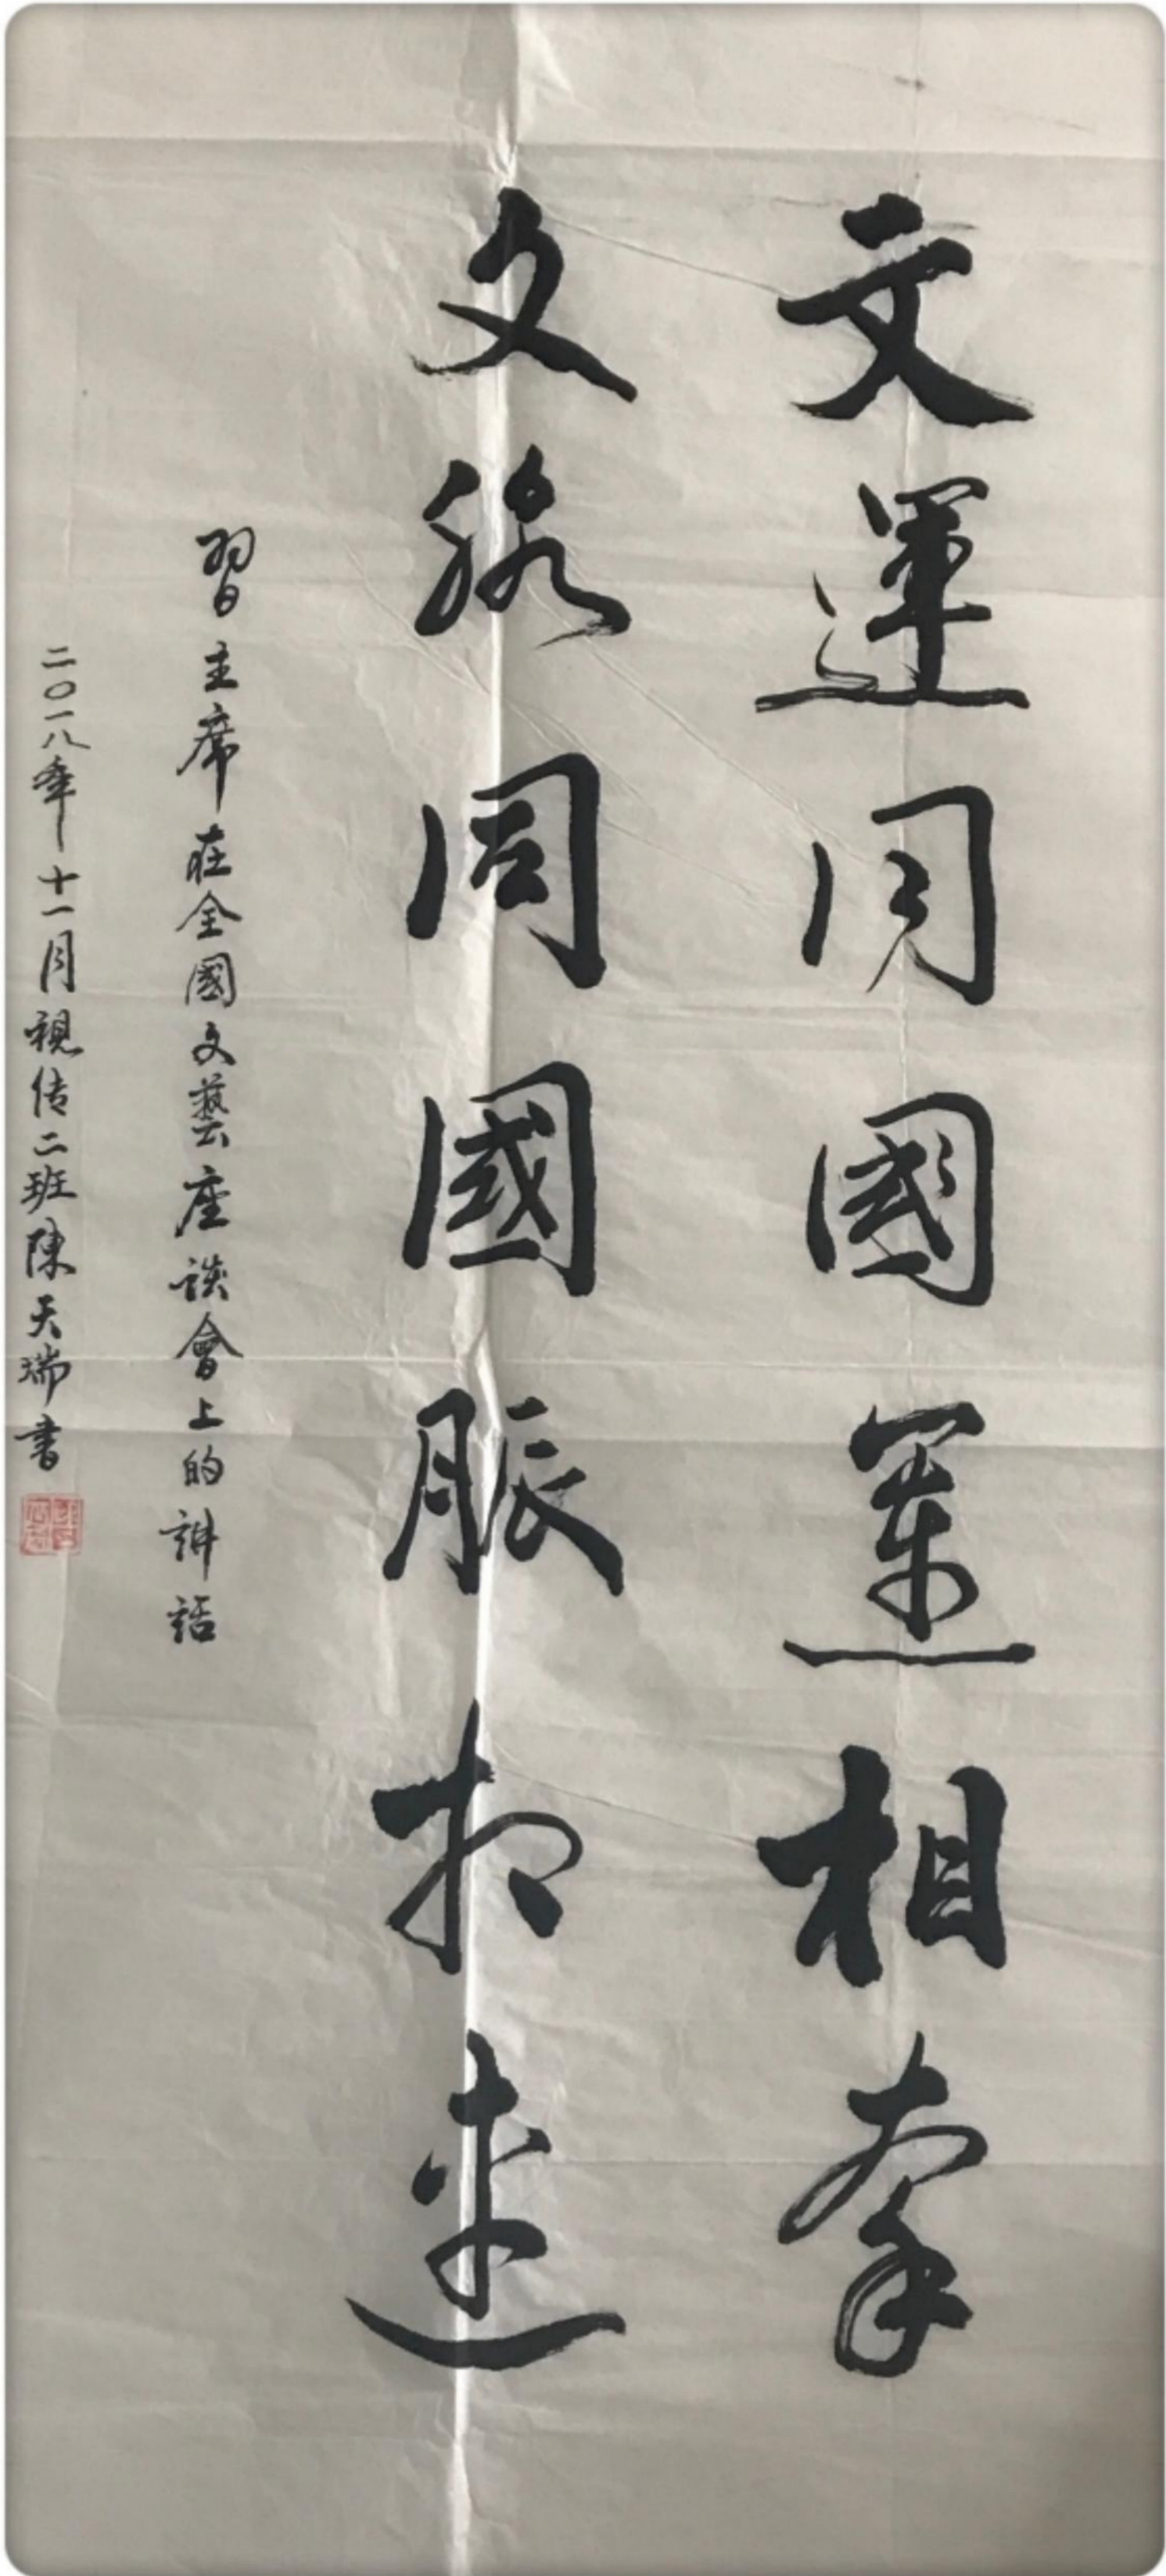 文運同國運相牽
文脈同國脈相連
習主席在全國文藝座談會上的講話
二〇一八年十一月視传二班陳天瑞書